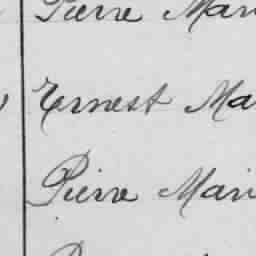 Pierre Mari
Ernest Ma
Pierre Mari